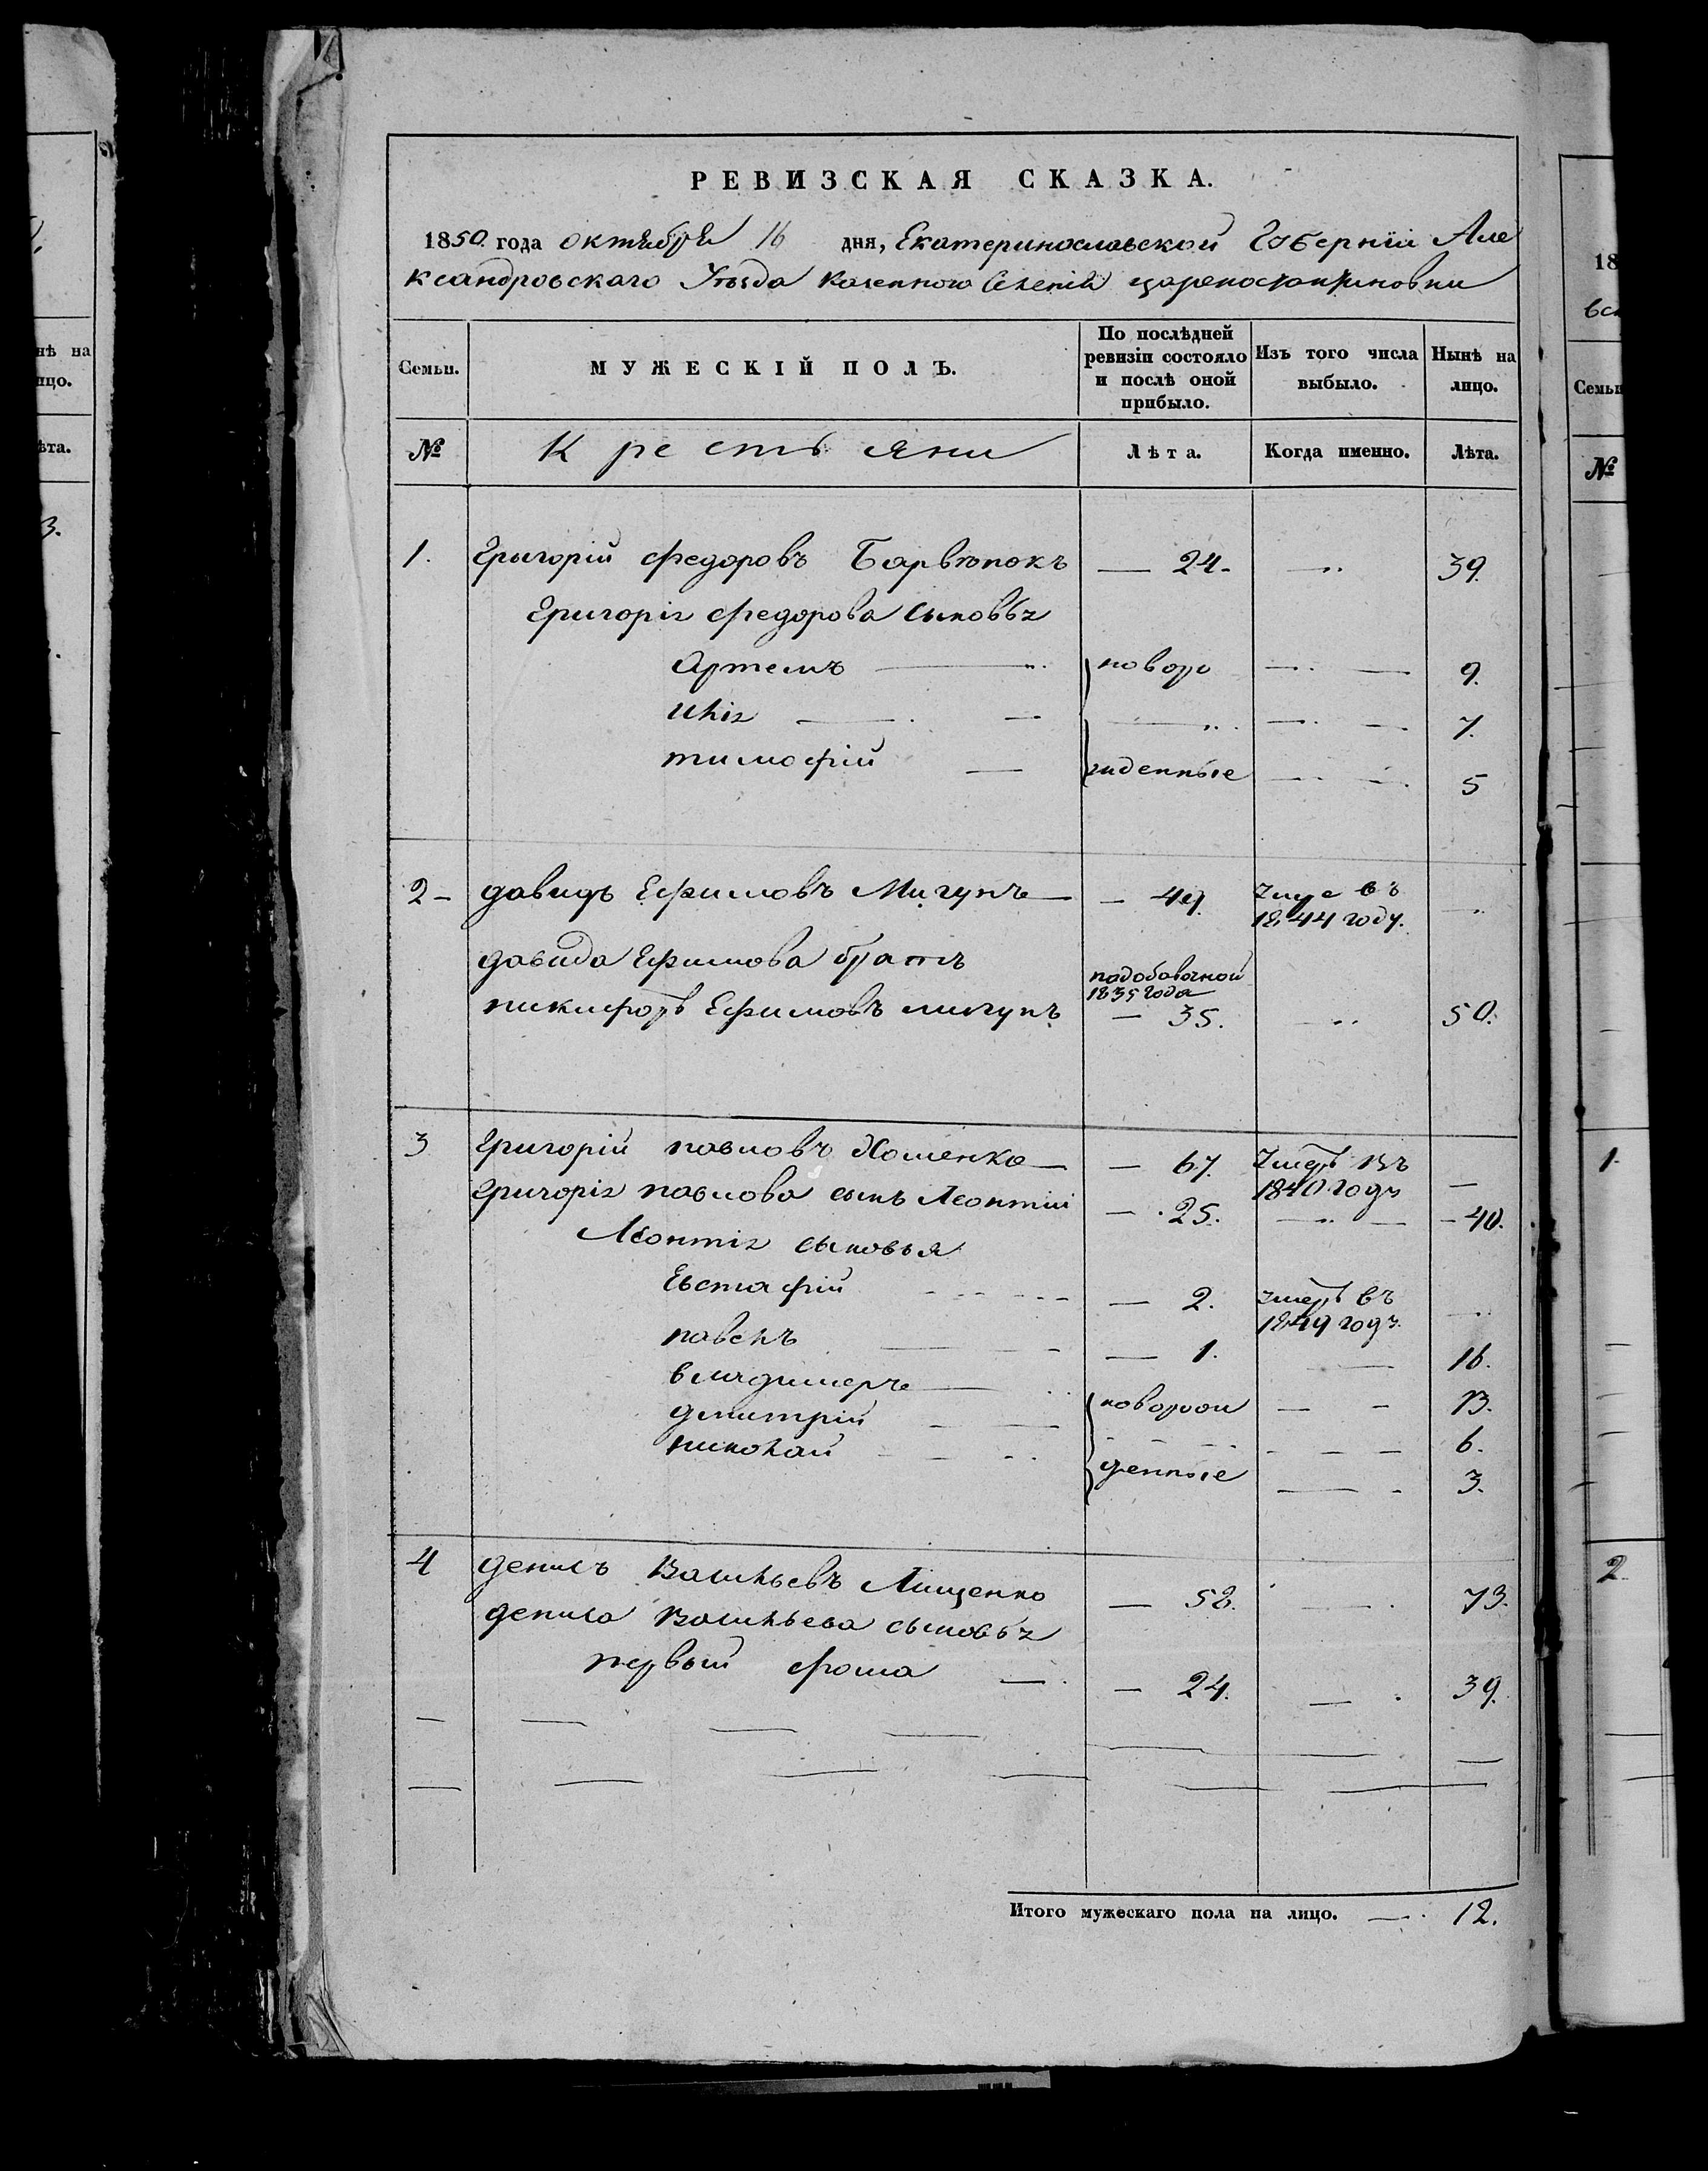 РЕВИЗСКАЯ СКАЗКА.
1850. года октября 16 дня, Екатеринославской Губерніи Але
ксандровского Уѣзда Казенного Селенія Цареконстантиновки
Семьи. МУЖЕСКІЙ ПОЛЪ. По послѣдней ревизіи состояло и послѣ оной прибыло. Изъ того числа выбыло. Нынѣ на лицо.
№ Крестьяни Лѣта. Когда именно. Лѣта.
1. Григорій Федоровъ Барвѣнокъ — 24. — 39.
Григорія Федорова сыновья
Артемъ — новоро — 9.
Илія — 7.
тимофій — жденные — 5
2 — давидъ Ефимовъ Мигунъ — 49. Умре въ 1844 году. —
давида Ефимова братъ
никифоръ Ефимовъ мигунъ подобавочной 1835 года — 35. — 50.
3 Григорій павловъ Хоменко — 67. Умеръ въ 1840 годѣ —
Григорія павлова сынъ Леонтій — 25. — 40.
Леонтія сыновья
Евстафій — 2. умеръ въ 1849 годѣ. —
павелъ — 1. — 16.
владимеръ — новорож — 13.
дмитрій — 6.
николай — денные — 3.
4 денисъ Васильевъ Лищенко — 58. — 73.
дениса Васильева сыновья
первый фома — 24. — 39.
Итого мужескаго пола на лицо. — 12.
18
вск
Семьи
№
1.
2.
нѣ на
ицо.
ѣта.
3.